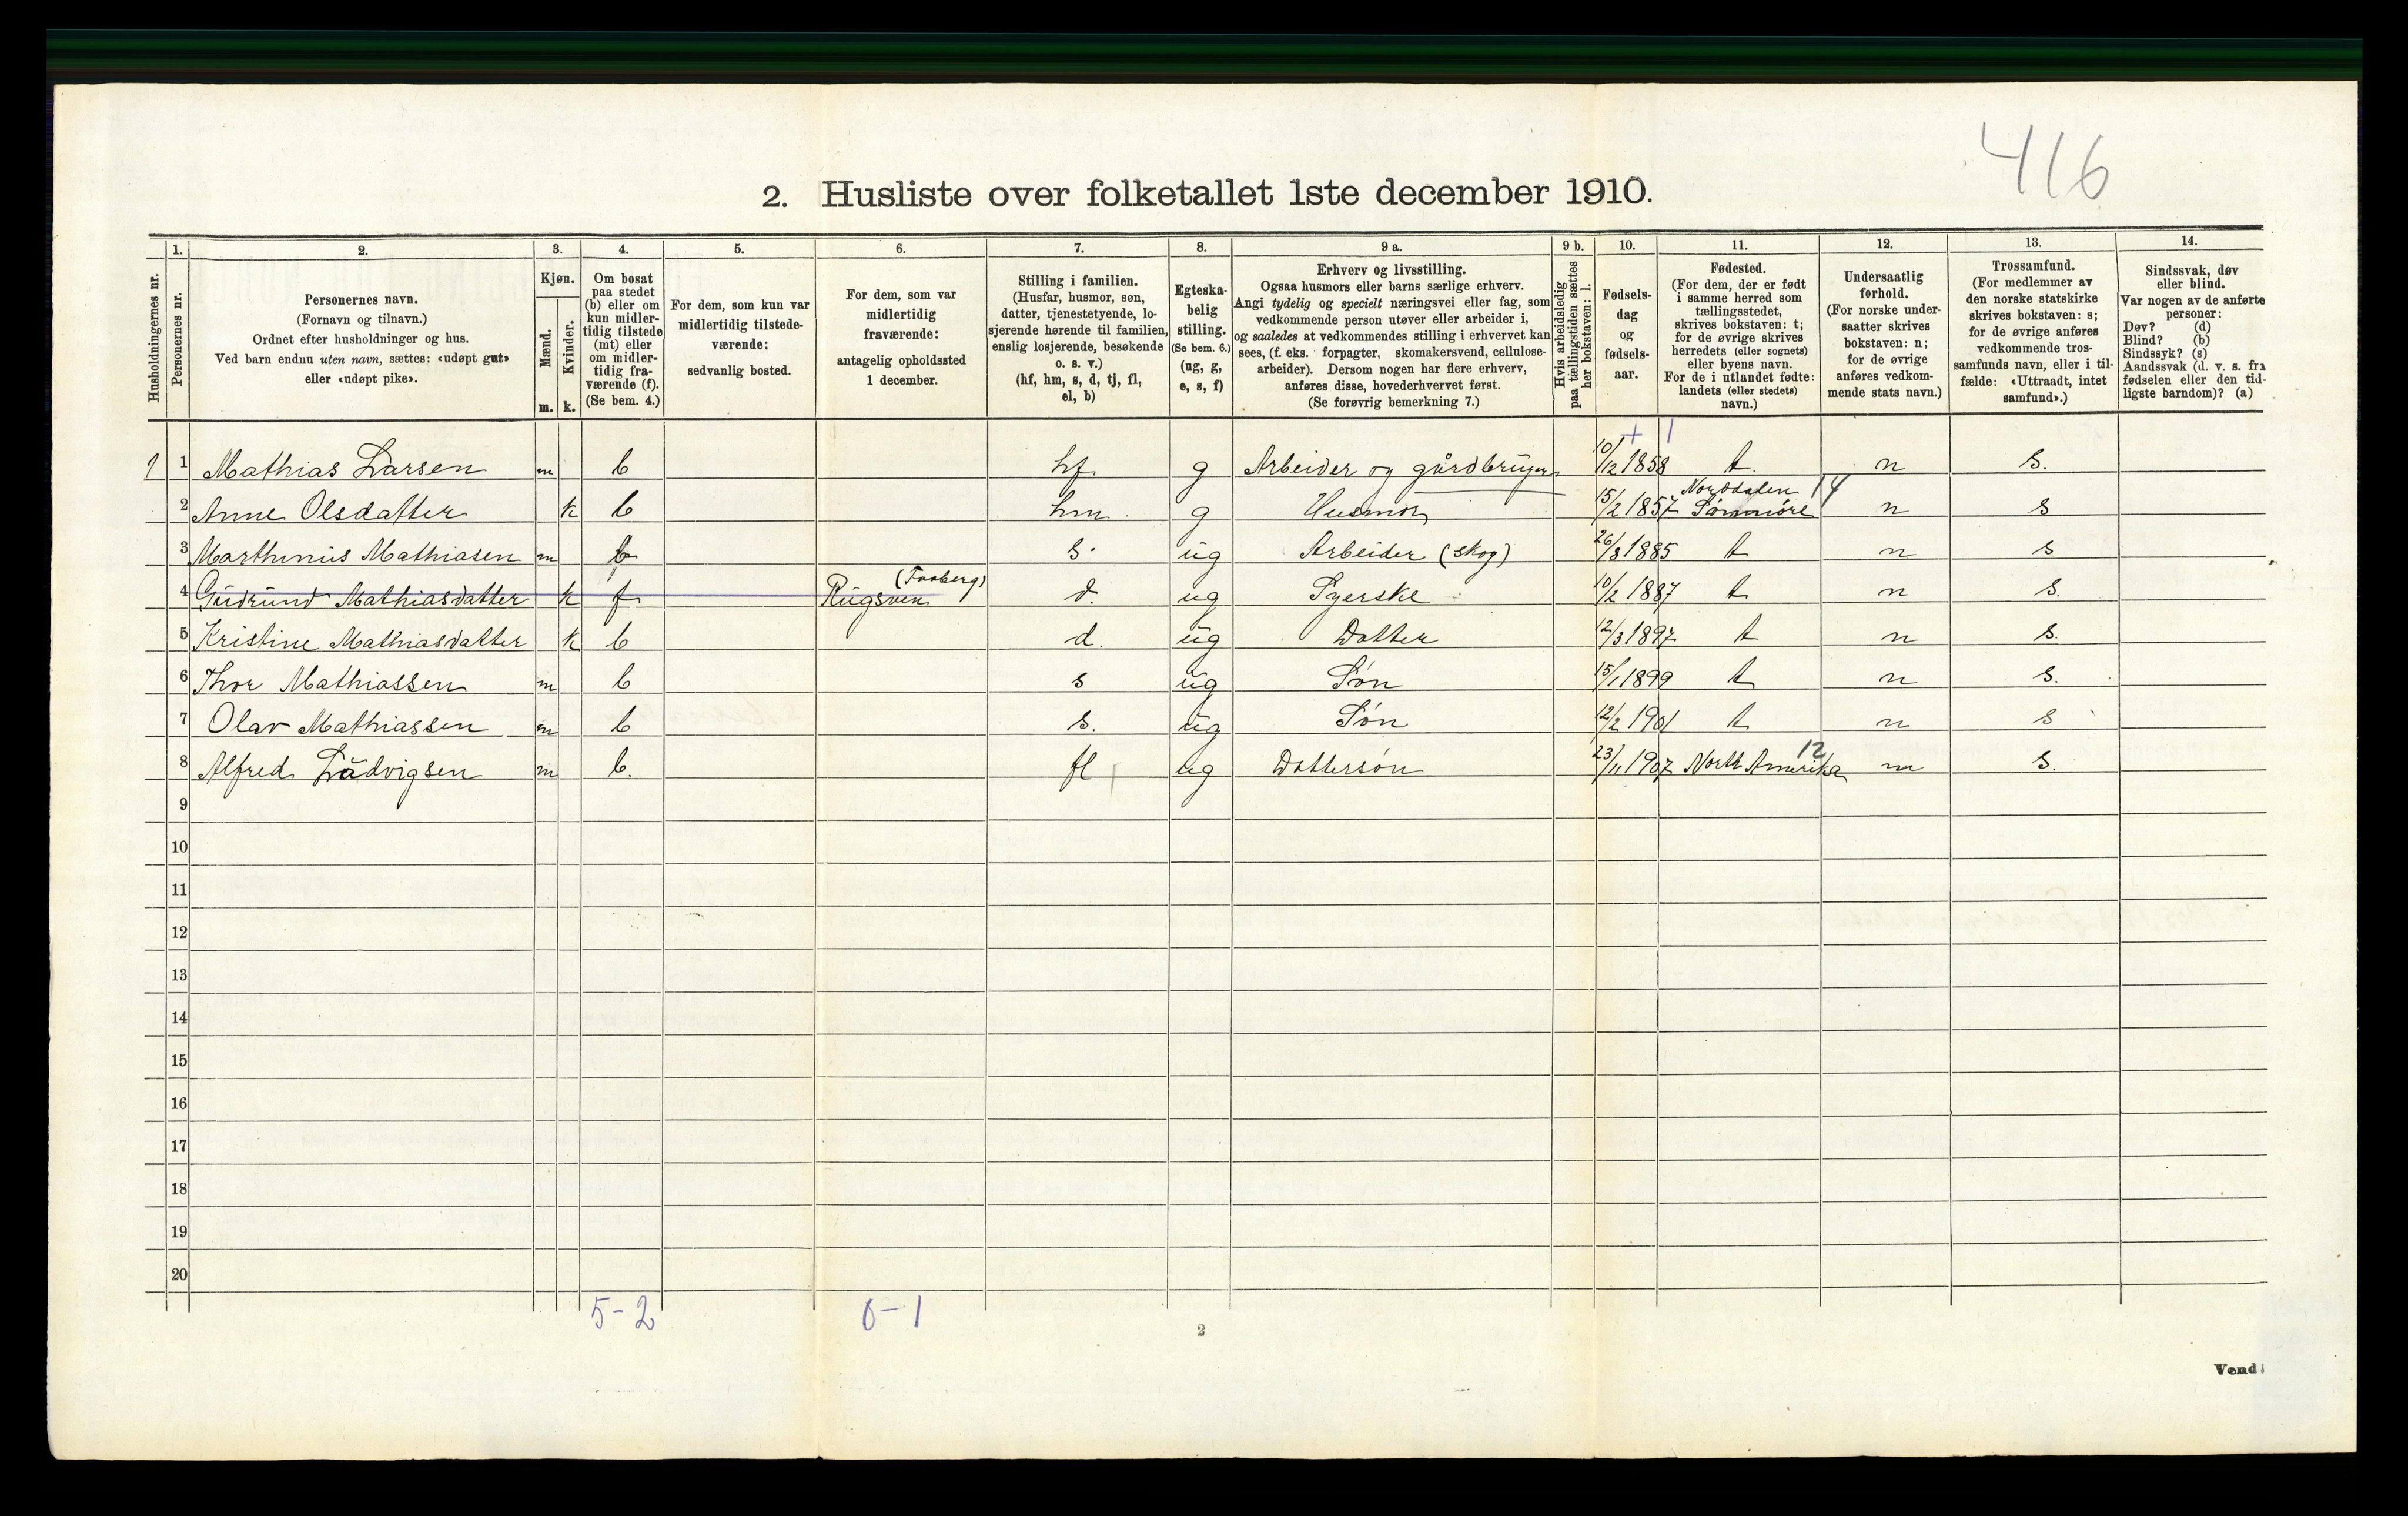 416
2. Husliste over folketallet 1ste december 1910.
Husholdningernes nr.
1. Personernes nr.
2. Personernes navn.
(Fornavn og tilnavn.)
Ordnet efter husholdninger og hus.
Ved barn endnu uten navn, sættes: «udøpt gut»
eller «udøpt pike».
3. Kjøn.
Mænd. m.
Kvinder. k.
4. Om bosat
paa stedet
(b) eller om
kun midler-
tidig tilstede
(mt) eller
om midler-
tidig fra-
værende (f).
(Se bem. 4.)
5. For dem, som kun var
midlertidig tilstede-
værende:
sedvanlig bosted.
6. For dem, som var
midlertidig
fraværende:
antagelig opholdssted
1 december.
7. Stilling i familien.
(Husfar, husmor, søn,
datter, tjenestetyende, lo-
sjerende hørende til familien,
enslig losjerende, besøkende
o. s. v.)
(hf, hm, s, d, tj, fl,
el, b)
8. Egteska-
belig
stilling.
(Se bem. 6.)
(ug, g,
e, s, f)
9 a. Erhverv og livsstilling.
Ogsaa husmors eller barns særlige erhverv.
Angi tydelig og specielt næringsvei eller fag, som
vedkommende person utøver eller arbeider i,
og saaledes at vedkommendes stilling i erhvervet kan
sees, (f. eks. forpagter, skomakersvend, cellulose-
arbeider). Dersom nogen har flere erhverv,
anføres disse, hovederhvervet først.
(Se forøvrig bemerkning 7.)
9 b. Hvis arbeidsledig
paa tællingstiden sættes
her bokstaven: l.
10. Fødsels-
dag
og
fødsels-
aar.
11. Fødested.
(For dem, der er født
i samme herred som
tællingsstedet,
skrives bokstaven: t;
for de øvrige skrives
herredets (eller sognets)
eller byens navn.
For de i utlandet fødte:
landets (eller stedets)
navn.)
12. Undersaatlig
forhold.
(For norske under-
saatter skrives
bokstaven: n;
for de øvrige
anføres vedkom-
mende stats navn.)
13. Trossamfund.
(For medlemmer av
den norske statskirke
skrives bokstaven: s;
for de øvrige anføres
vedkommende tros-
samfunds navn, eller i til-
fælde: «Uttraadt, intet
samfund».)
14. Sindssvak, døv
eller blind.
Var nogen av de anførte
personer:
Døv? (d)
Blind? (b)
Sindssyk? (s)
Aandssvak (d. v. s. fra
fødselen eller den tid-
ligste barndom)? (a)
+ 1
1 1 Mathias Larsen m b hf g Arbeider og gårdbruger 10/12 1858 t. n s.
2 Anne Olsdatter k b hm g Husmor 15/2 1857 Norddalen Sønmöre 14 n s
3 Marthinus Mathiasen m b s. ug Arbeider (skog) 26/8 1885 t n s
4 Gudrund Mathiasdatter k f Rugsven (Faaberg) d. ug Syerske 10/2 1887 t n s.
5 Kristine Mathiasdatter k b d. ug Datter 12/3 1897 t n s.
6 Thor Mathiassen m b s ug Søn 15/1 1899 t n s.
7 Olav Mathiassen m b s. ug Søn 12/2 1901 t n s
8 Alfred Ludvigsen m b. fl ug Dattersøn 23/11 1907 North Amerika 12 n s.
9
10
11
12
13
14
15
16
17
18
19
20
5-2 0-1
2
Vend!